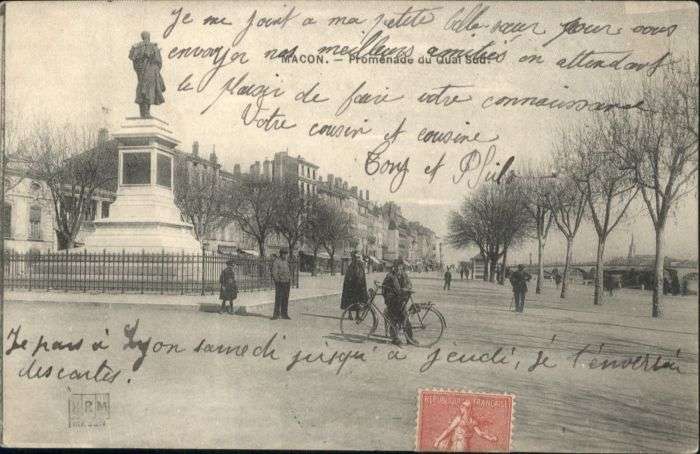 Je me joint a ma petite belle sœur pour vous
envoyer nos meilleurs amitiés en attendant
MACON. - Promenade du Quai Sud.
le plaisir de faire votre connaissance
Votre cousin et cousine
Tony et
Je pars à Lyon samedi jusqu'à jeudi, je t'enverrai
des cartes.
REPUBLIQUE FRANÇAISE